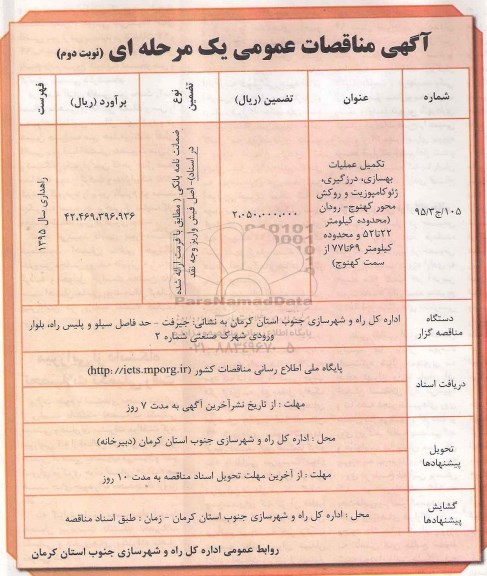 آگهی مناقصات عمومی یک مرحله ای (نوبت دوم)
شماره
عنوان
تضمین (ریال)
نوع تضمین
برآورد (ریال)
فهرست
۹۵/۳/ج/۱۰۵
تکمیل عملیات
بهسازی، درزگیری،
ژئوکامپوزیت و روکش
محور کهنوج- رودان
(محدوده کیلومتر
۲۲تا۵۲ و محدوده
کیلومتر ۶۹تا۷۷ از
سمت کهنوج)
۲،۰۵۰،۰۰۰،۰۰۰
ضمانت نامه بانکی ( مطابق با فرمت ارائه شده
در اسناد)- اصل فیش واریز وجه نقد
۴۲،۴۶۹،۳۹۶،۹۳۶
راهداری سال ۱۳۹۵
ParsNamadData
دستگاه
مناقصه گزار
اداره کل راه و شهرسازی جنوب استان کرمان به نشانی: جیرفت - حد فاصل سیلو و پلیس راه، بلوار
ورودی شهرک صنعتی شماره ۲
دریافت اسناد
پایگاه ملی اطلاع رسانی مناقصات کشور (http://iets.mporg.ir)
مهلت : از تاریخ نشرآخرین آگهی به مدت ۷ روز
تحویل
پیشنهادها
محل : اداره کل راه و شهرسازی جنوب استان کرمان (دبیرخانه)
مهلت : از آخرین مهلت تحویل اسناد مناقصه به مدت ۱۰ روز
گشایش
پیشنهادها
محل : اداره کل راه و شهرسازی جنوب استان کرمان - زمان : طبق اسناد مناقصه
روابط عمومی اداره کل راه و شهرسازی جنوب استان کرمان